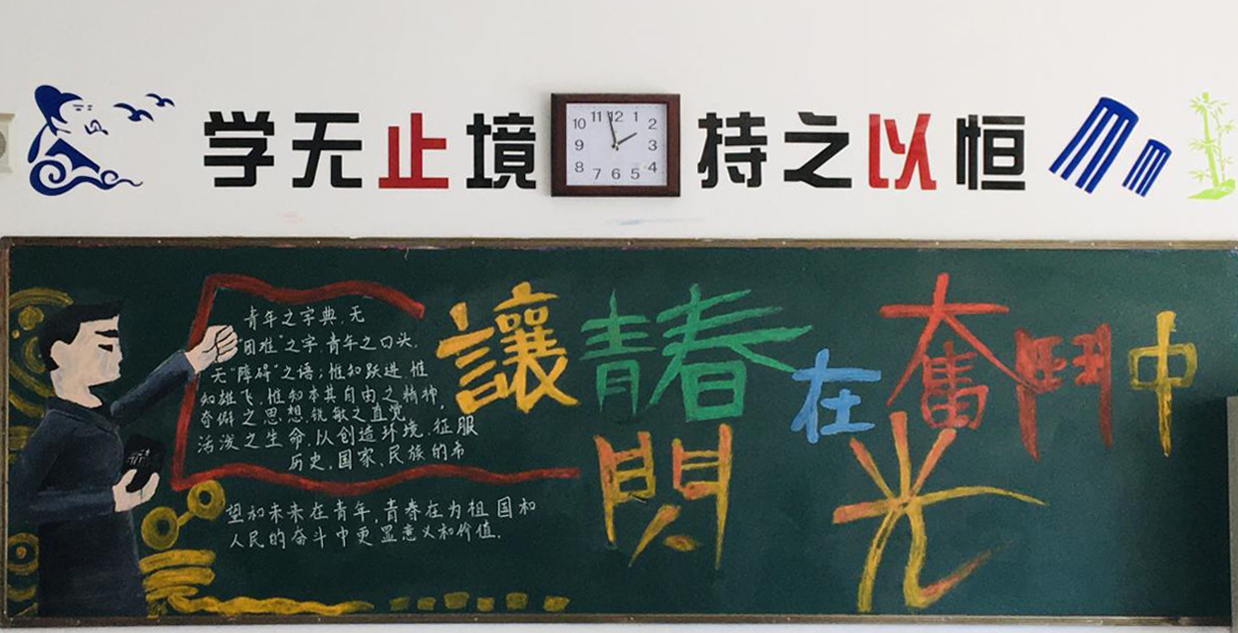 学无止境 持之以恒
11 12 1
10 2
9 3
8 4
7 6 5
青年之字典,无
"困难"之字,青年之口头,
无"障碍"之语;惟知跃进,惟
知雄飞,惟知本其自由之精神,
奇僻之思想,锐敏之直觉,
活泼之生命,以创造环境,征服
历史。国家、民族的希
望和未来在青年,青春在为祖国和
人民的奋斗中更显意义和价值。
讓青春在奮鬥中
閃光